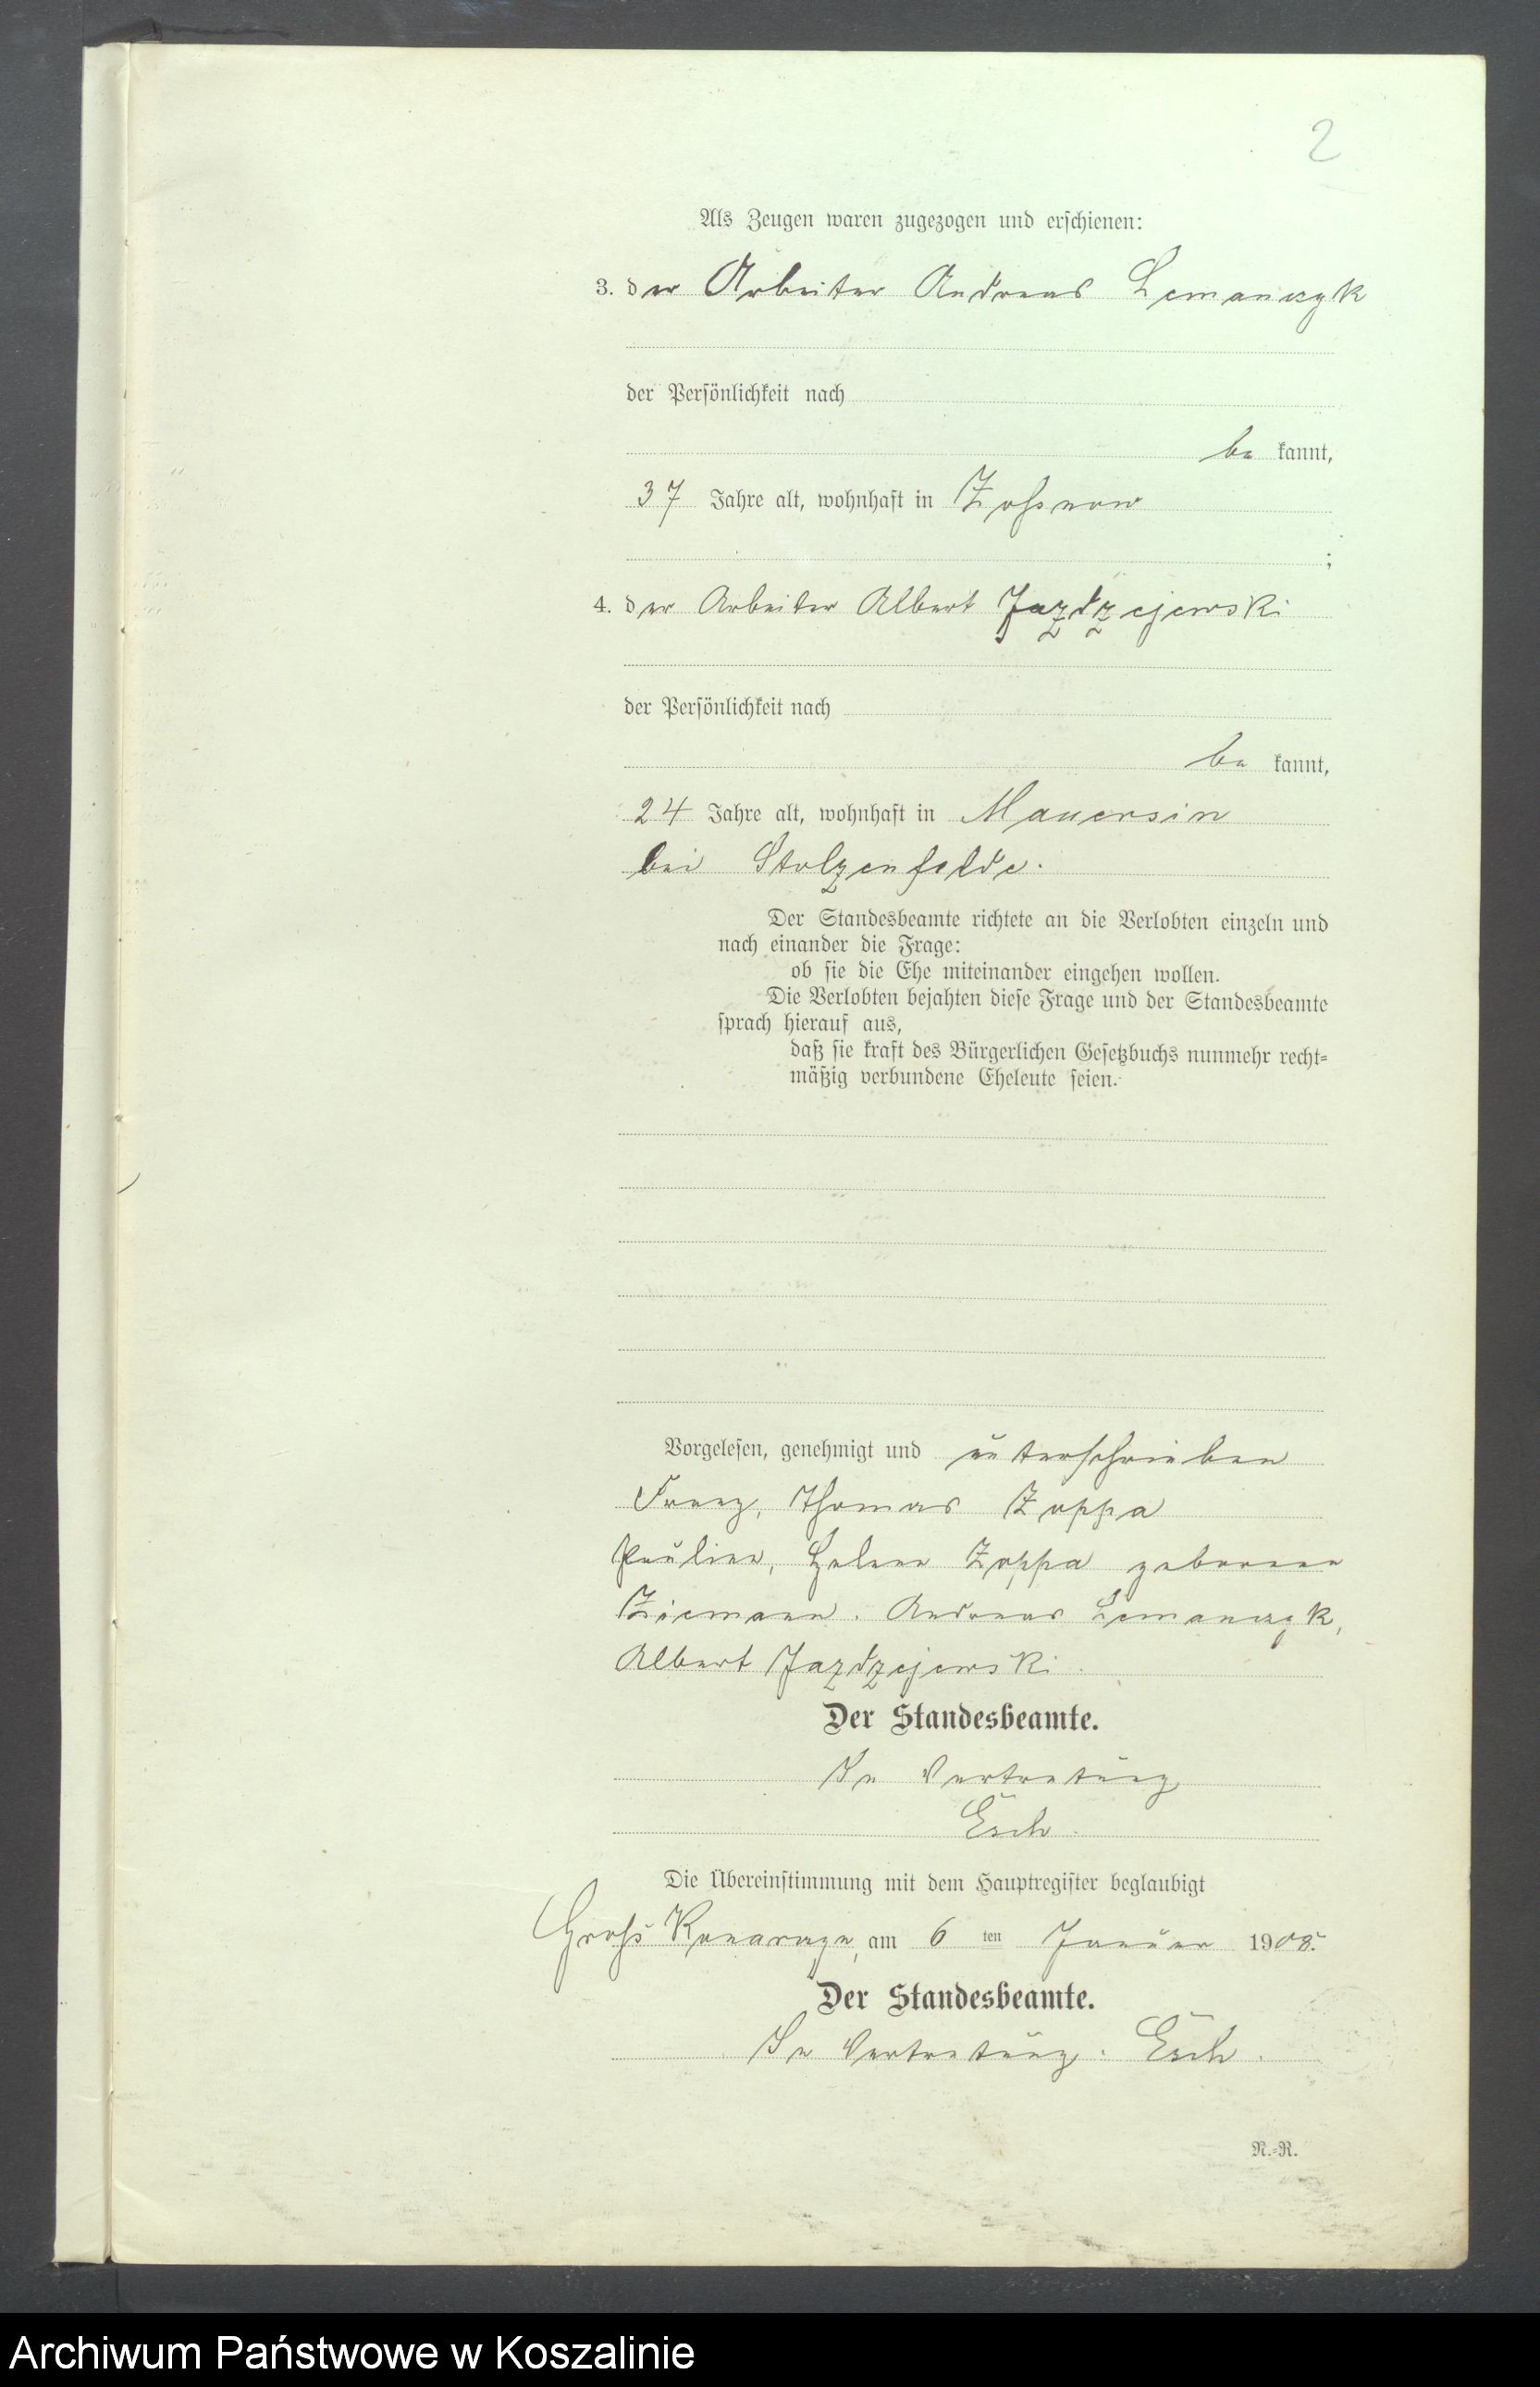 2
Als Zeugen waren zugezogen und erschienen:
3. der Arbeiter Andreas Lemanczyk
der Persönlichkeit nach
be kannt,
37 Jahre alt, wohnhaft in Zossnow
;
4. der Arbeiter Albert Jazdzejewski
der Persönlichkeit nach
be kannt,
24 Jahre alt, wohnhaft in Mauersin
bei Stolzenfelde.
Der Standesbeamte richtete an die Verlobten einzeln und
nach einander die Frage:
ob sie die Ehe miteinander eingehen wollen.
Die Verlobten bejahten diese Frage und der Standesbeamte
sprach hierauf aus,
daß sie kraft des Bürgerlichen Gesetzbuchs nunmehr recht-
mäßig verbundene Eheleute seien.
Vorgelesen, genehmigt und unterschrieben
Franz, Thomas Zoppa
Pauline, Helene Zoppa geborene
Ziemann. Andreas Lemanczyk,
Albert Jazdzejewski.
Der Standesbeamte.
In Vertretung
Esch.
Die Übereinstimmung mit dem Hauptregister beglaubigt
Gross Konarczyn, am 6 ten Januar 1908.
Der Standesbeamte.
In Vertretung. Esch.
N.-R.
Archiwum Państwowe w Koszalinie